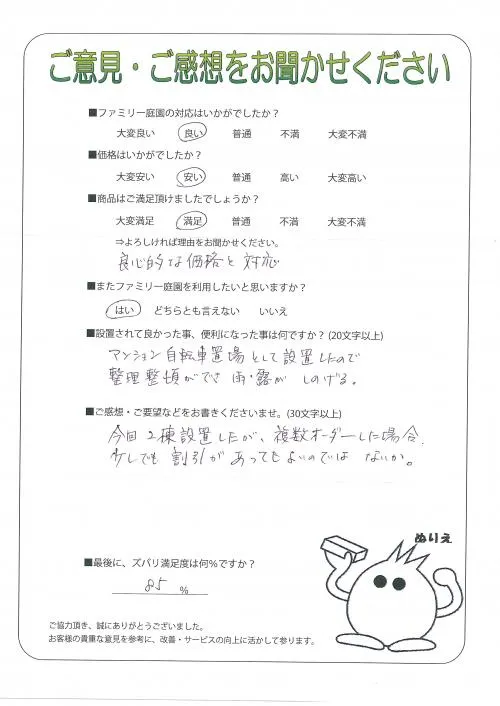 ご意見・ご感想をお聞かせください
■ファミリー庭園の対応はいかがでしたか？
大変良い 良い 普通 不満 大変不満
■価格はいかがでしたか？
大変安い 安い 普通 高い 大変高い
■商品はご満足頂けましたでしょうか？
大変満足 満足 普通 不満 大変不満
⇒よろしければ理由をお聞かせください。
良心的な価格と対応
■またファミリー庭園を利用したいと思いますか？
はい どちらとも言えない いいえ
■設置されて良かった事、便利になった事は何ですか？(20文字以上)
マンション自転車置場として設置したので
整理整頓ができ雨・露がしのげる。
■ご感想・ご要望などをお書きくださいませ。(30文字以上)
今回2棟設置したが、複数オーダーした場合、
少しでも割引があってもよいのではないか。
ぬりえ
■最後に、ズバリ満足度は何％ですか？
85 %
ご協力頂き、誠にありがとうございました。
お客様の貴重な意見を参考に、改善・サービスの向上に活かして参ります。